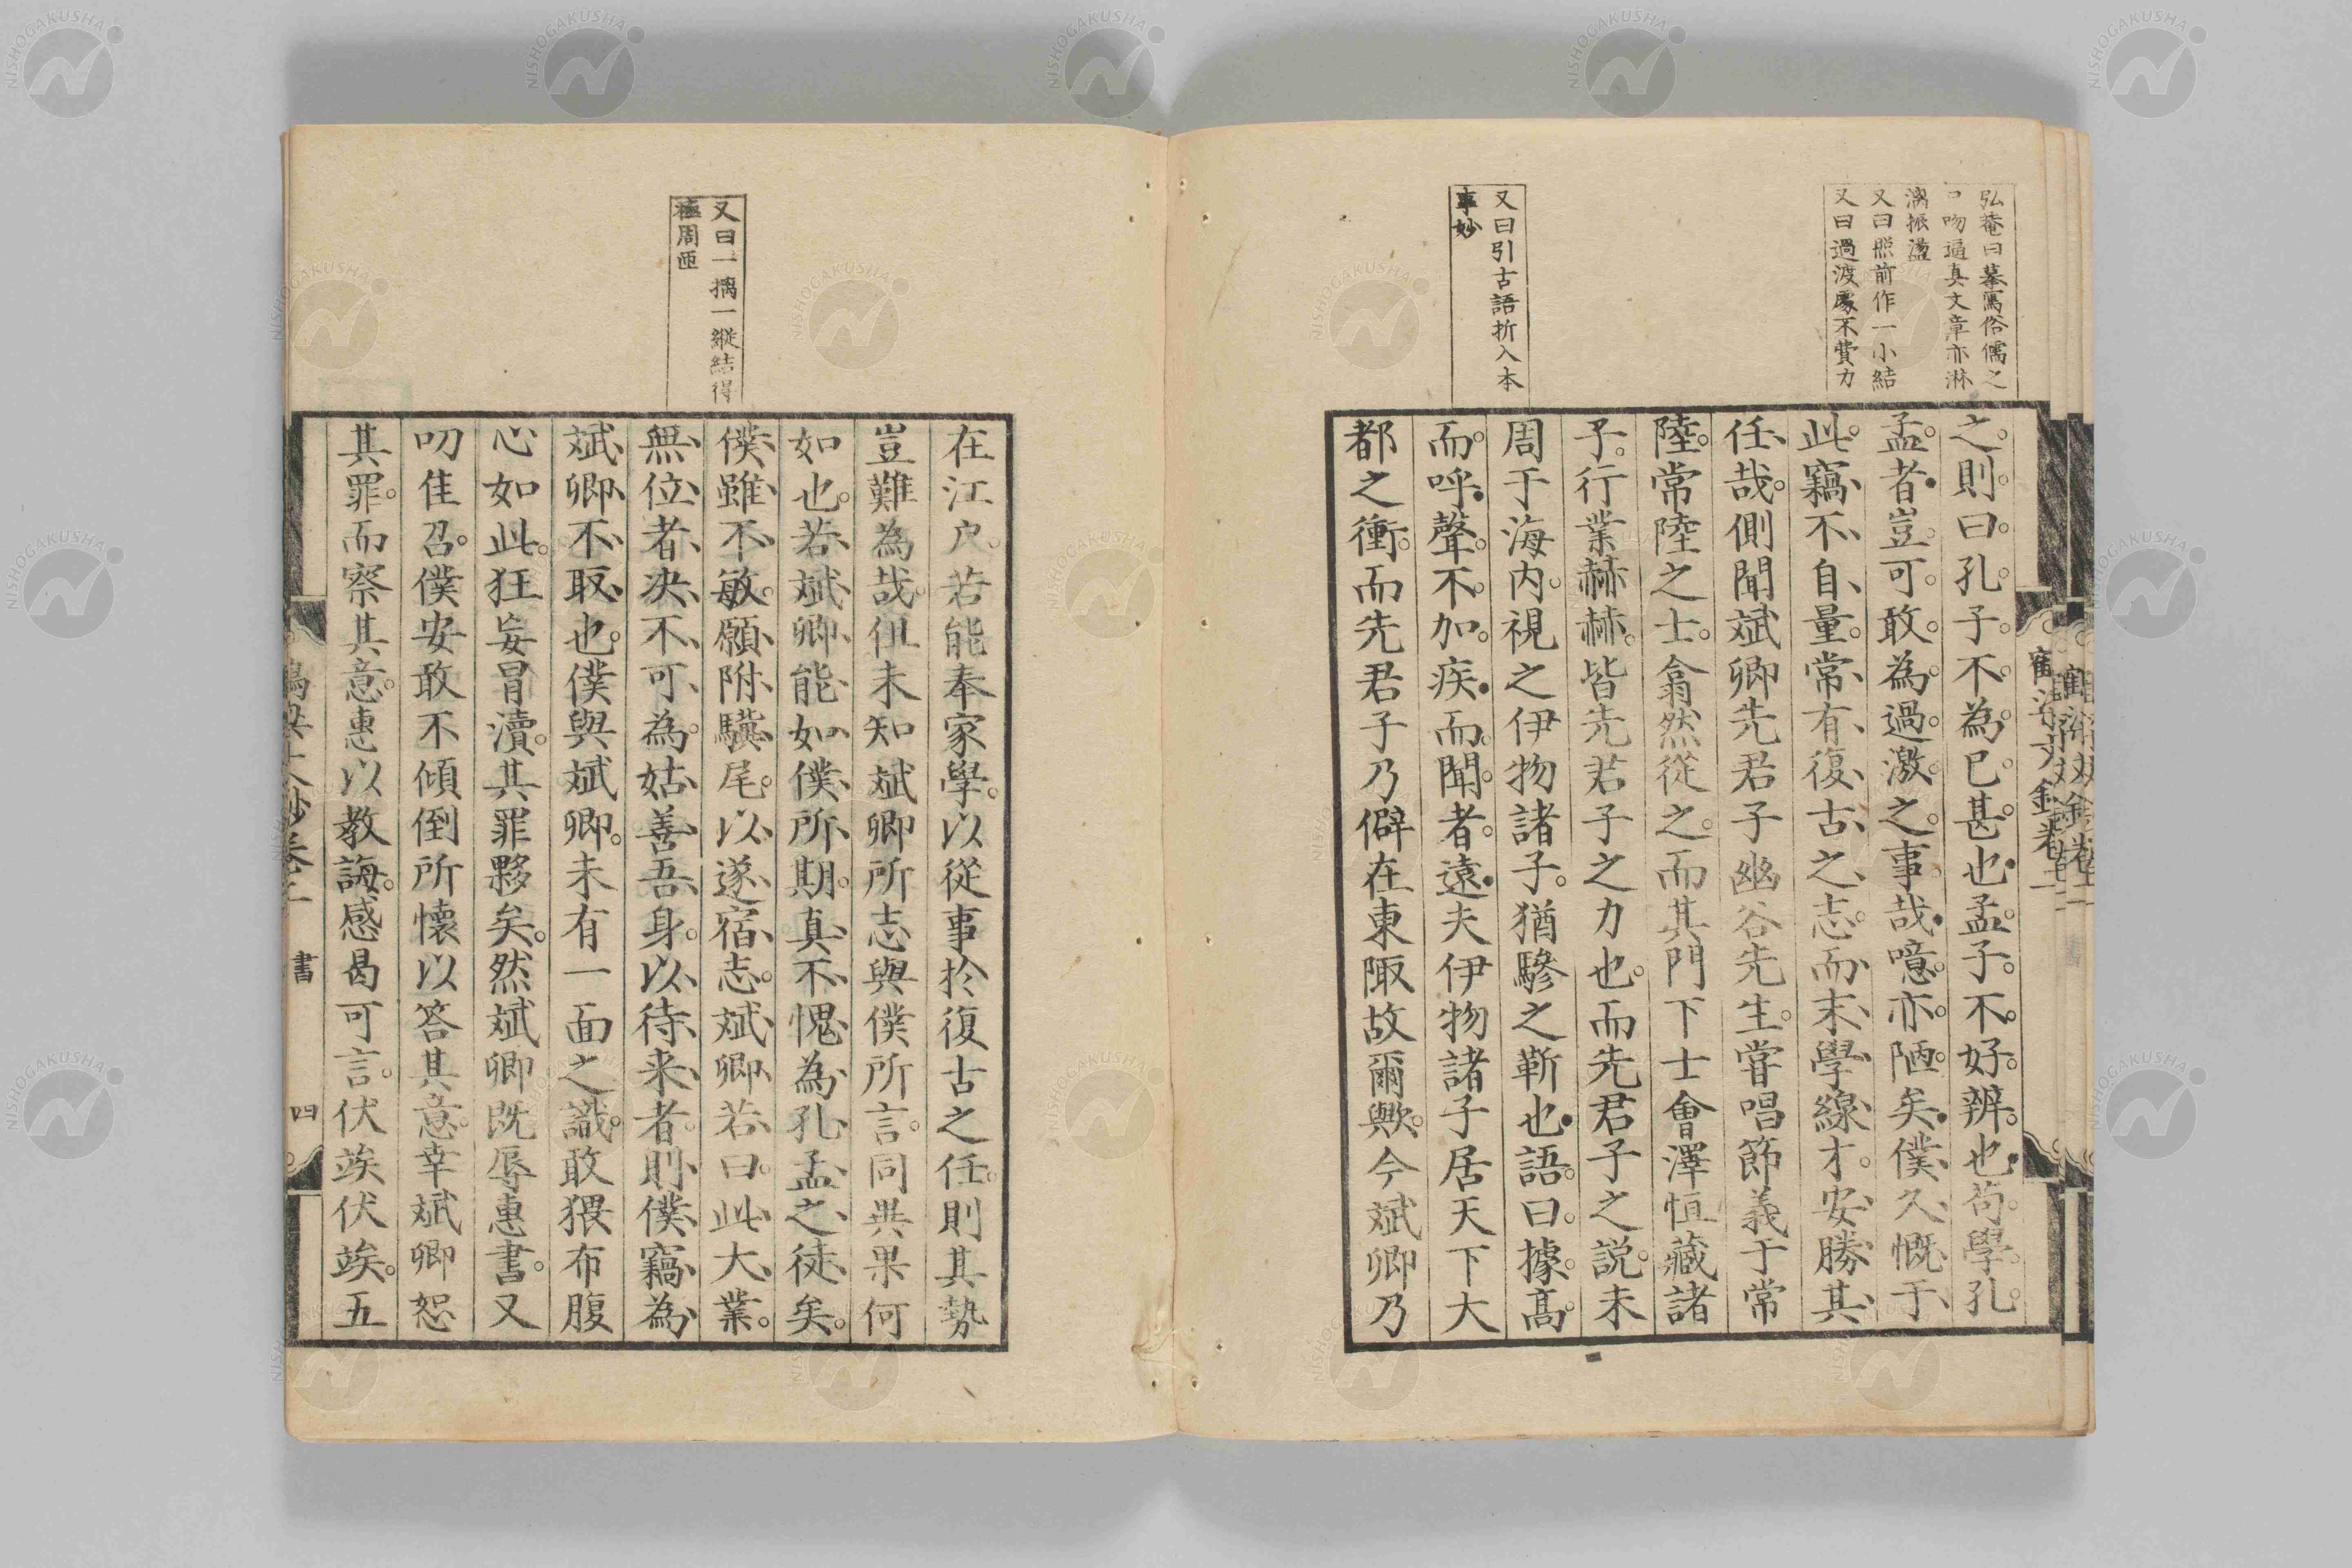 弘菴曰摹寫俗儒之
口吻逼真文章亦淋
漓振盪
又曰照前作一小結
又曰過渡處不費力
又曰引古語折入本
事妙
之則曰孔子不為已甚也孟子不好辨也苟學孔
孟者豈可敢為過激之事哉噫亦陋矣僕久慨于
此竊不自量常有復古之志而末學線才安勝其
任哉側聞斌卿先君子幽谷先生甞唱節義于常
陸常陸之士翕然從之而其門下士會澤恒藏諸
子行業赫赫皆先君子之力也而先君子之説未
周于海内視之伊物諸子猶驂之靳也語曰據高
而呼聲不加疾而聞者遠夫伊物諸子居天下大
都之衝而先君子乃僻在東陬故爾歟今斌卿乃
又曰一擒一縱結得
極周匝
在江戸若能奉家學以從事於復古之任則其勢
豈難為哉但未知斌卿所志與僕所言同㒰果何
如也若斌卿能如僕所期真不愧為孔孟之徒矣
僕雖不敏願附驥尾以遂宿志斌卿若曰此大業
無位者决不可為姑善吾身以待来者則僕竊為
斌卿不取也僕與斌卿未有一面之識敢猥布腹
心如此狂妄冒瀆其罪夥矣然斌卿既辱惠書又
叨隹召僕安敢不傾倒所懷以答其意幸斌卿恕
其罪而察其意惠以教誨感曷可言伏竢伏竢五
書
四